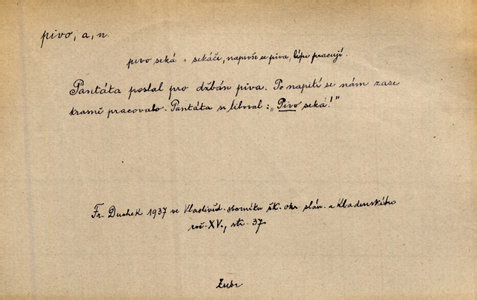 pivo, a, n.
pivo seká = sekáči, napivše se piva, lépe pracují.
Pantáta poslal pro džbán piva. Po napití se nám zase
pracovalo. Pantáta si liboval: „Pivo seká!"
Fr. Duchek 1937 ve Vlastivěd. sborníku šk. okr. slán. a Kladenského
roč. XV., str. 37.